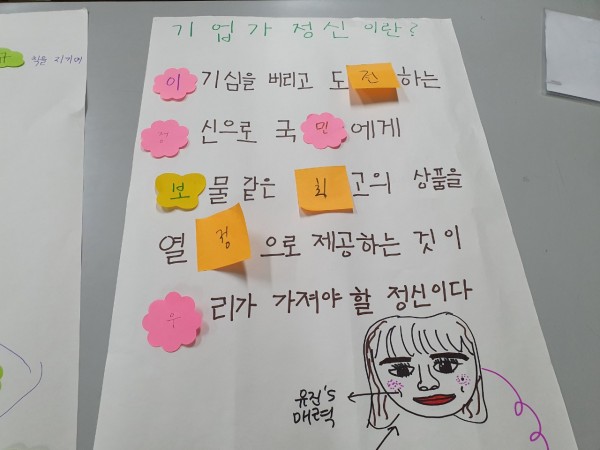 기업가 정신이란?
이기심을 버리고 도전하는
정신으로 국민에게
보물 같은 최고의 상품을
열정으로 제공하는 것이
우리가 가져야 할 정신이다
유진's
매력